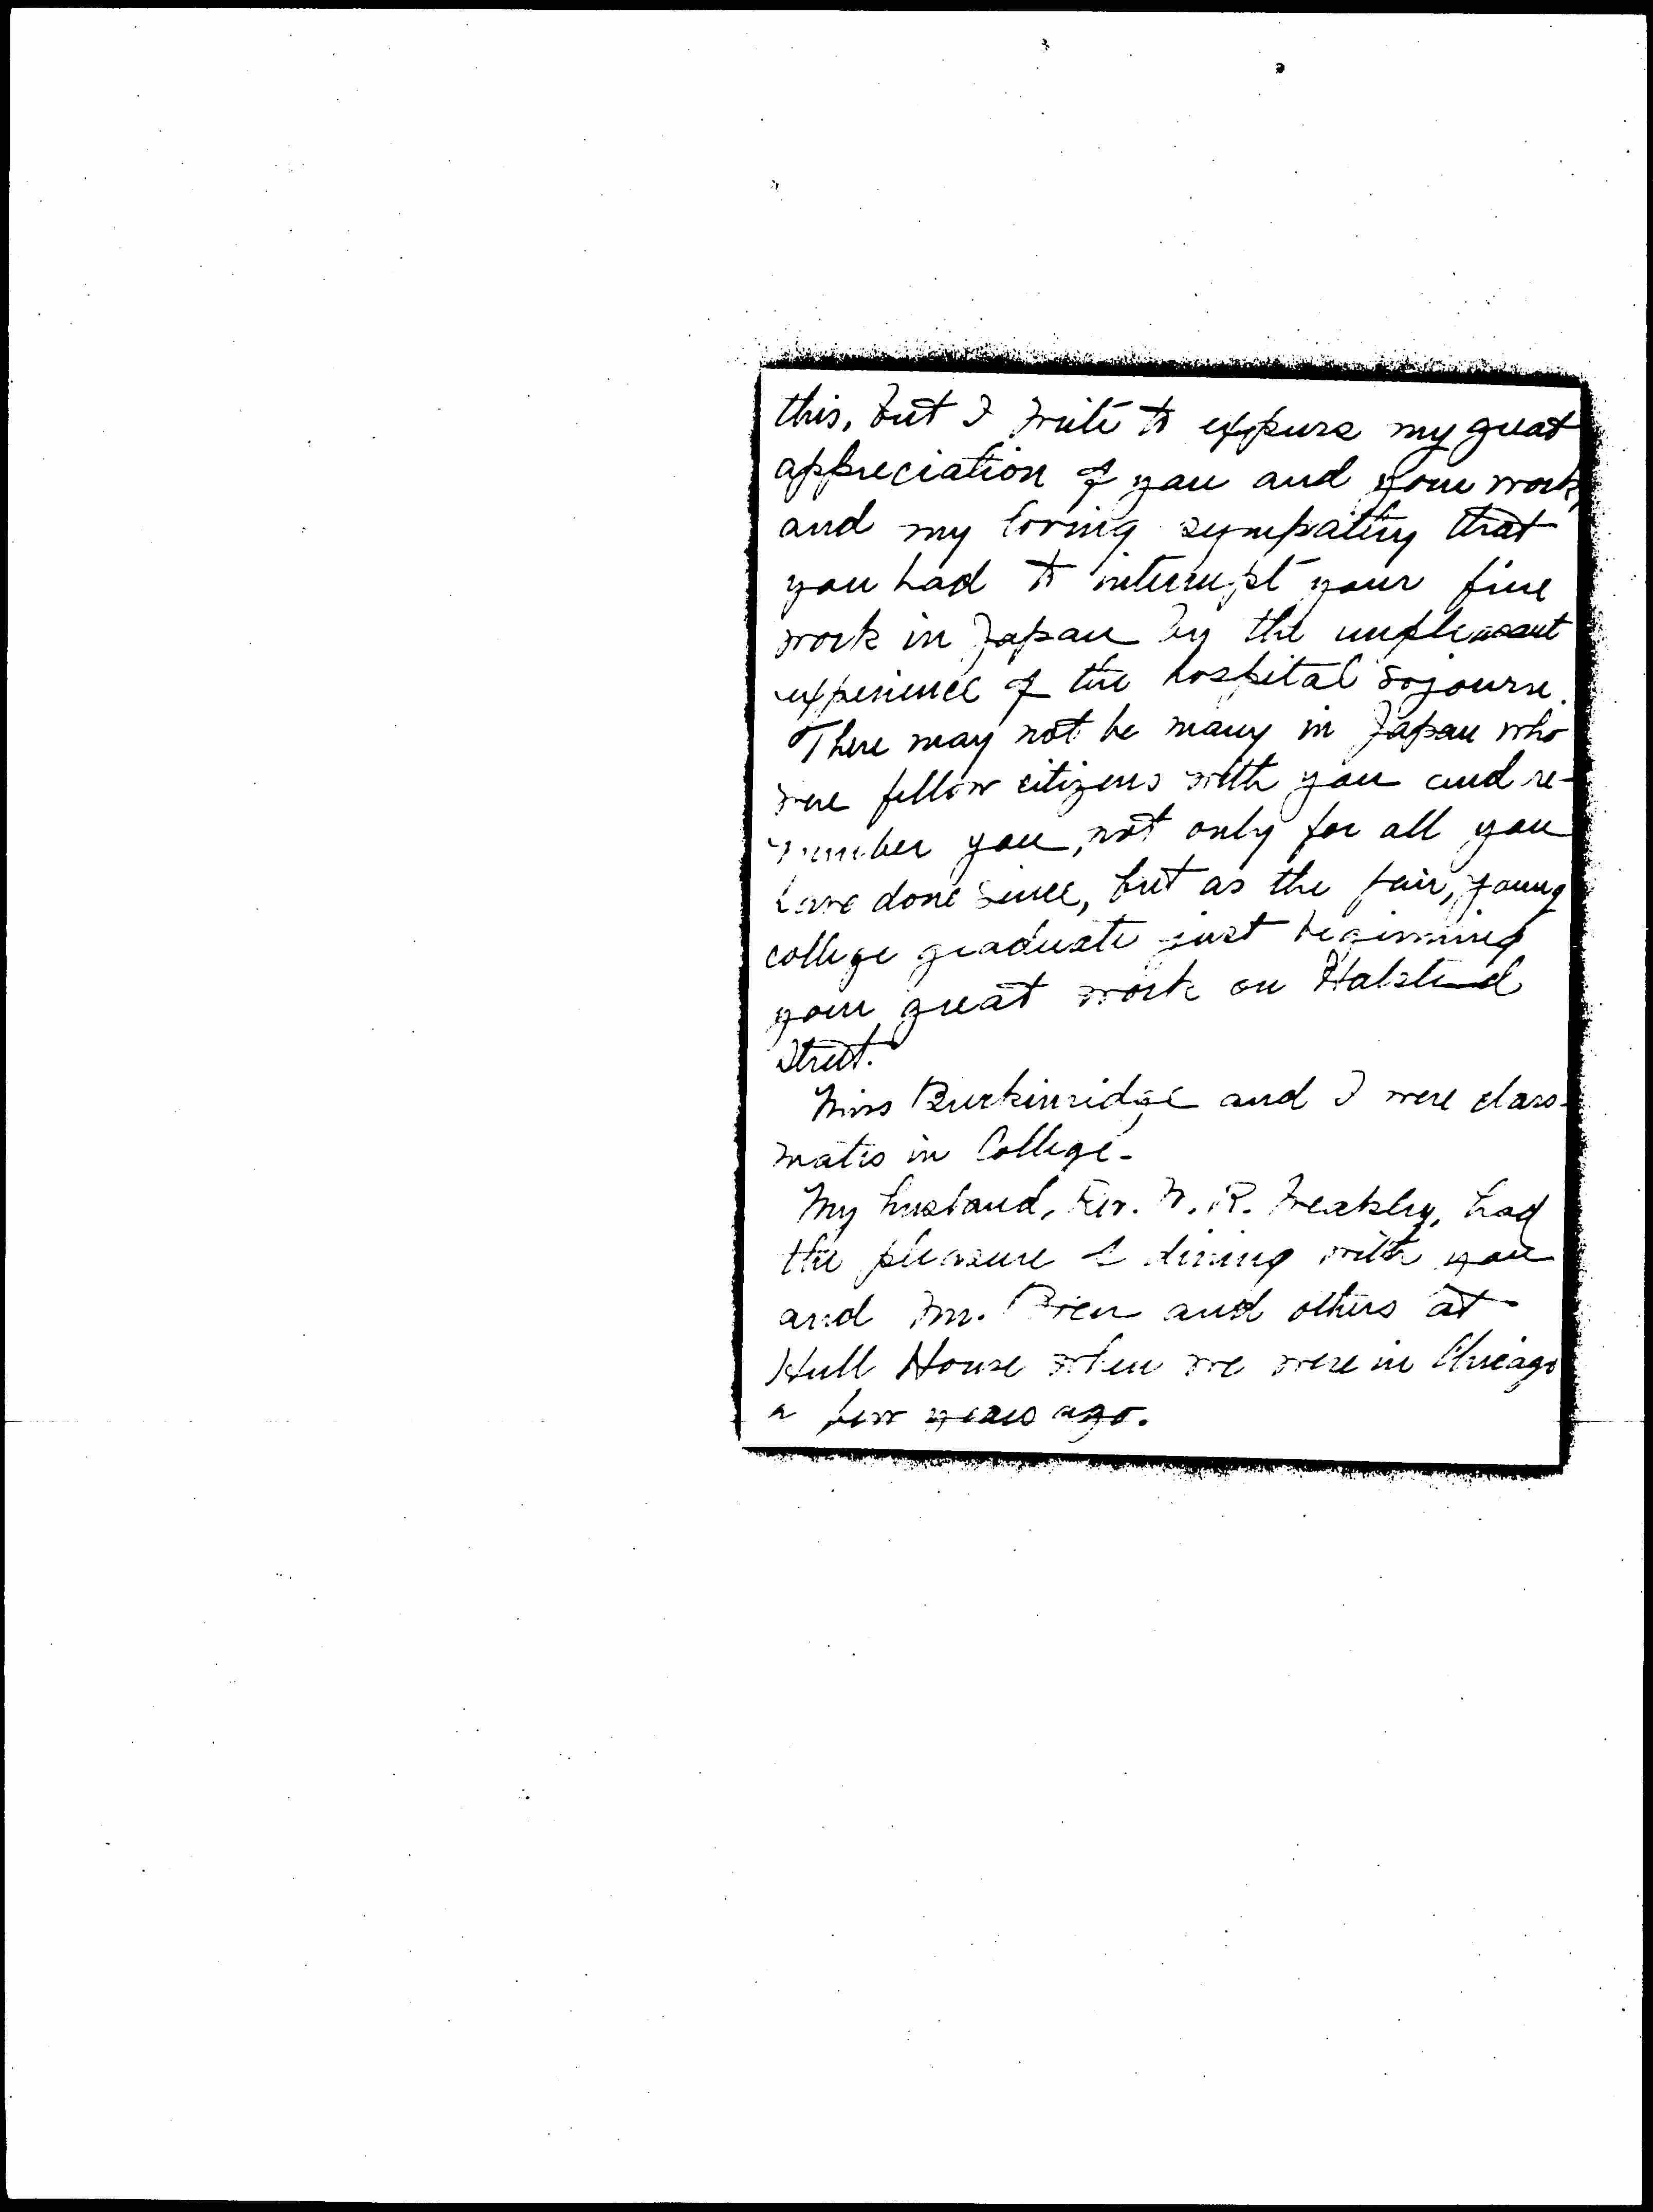 this, but I write to express my great
appreciation of you and your work,
and my loving sympathy that
you had to interrupt your fine
work in Japan by the unpleasant
experience of the hospital sojourn.
There may not be many in Japan who
were fellow citizens with you and re-
member you, not only for all you
have done since, but as the fair, young
college graduate just beginning
your great work on Halsted
Street.
Miss Breckinridge and I were class-
mates in College.
My husband, Rev. W. R. Weakley, had
the pleasure of dining with you
and Mr. and others at
Hull House when we were in Chicago
a few years ago.